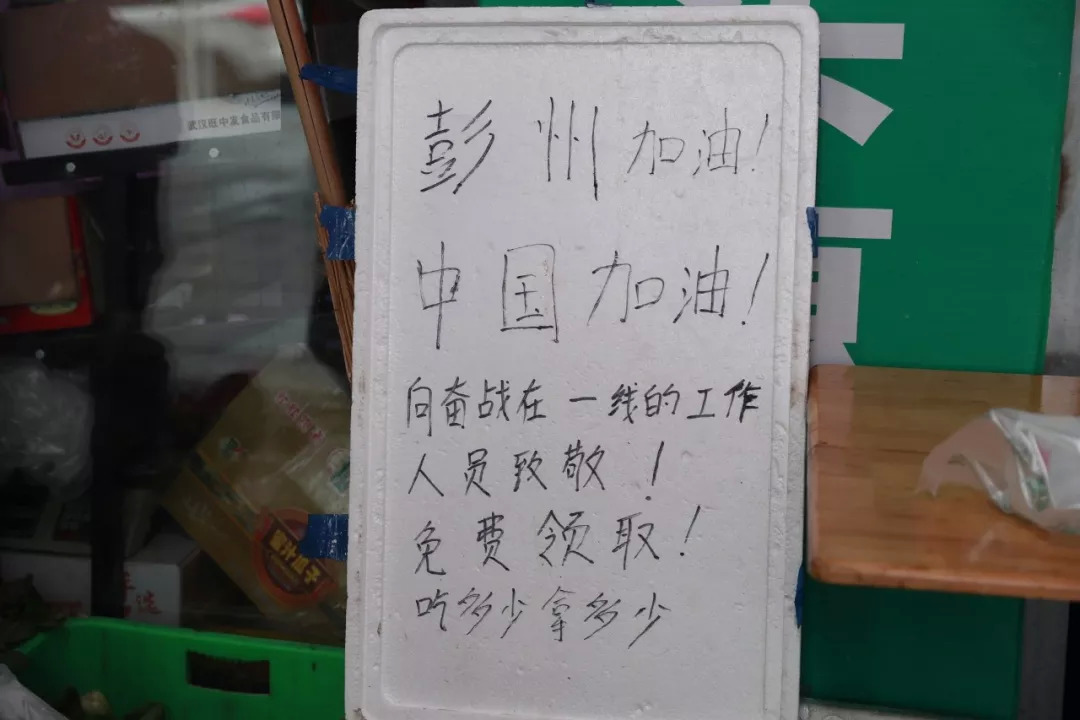 彭州加油!
中国加油!
向奋战在一线的工作
人员致敬!
免费领取!
吃多少拿多少
武汉旺中赢食品有限
蜜汁瓜子